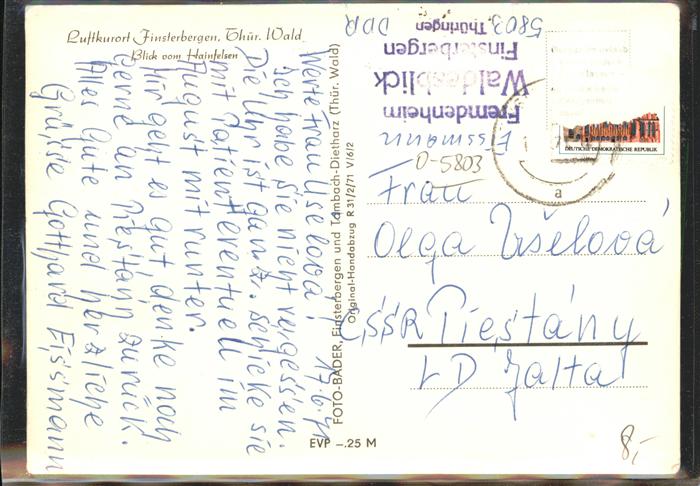 Luftkurort Finsterbergen, Thür. Wald
Blick vom Hainfelsen
Werte Frau Uselova! 17.6.71
Ich habe Sie nicht vergessen.
Die Uhr ist ganz. schicke sie
mit Patient eventuell im
August mit runter.
Mir geht es gut denke noch
gerne an Piestany zurück.
Alles Gute und herzliche
Grüsse Gotthard Eissmann
FOTO-BADER, Finsterbergen und Tambach-Dietharz (Thür. Wald)
Original-Handabzug R 31/2/71 V/612
EVP –.25 M
Eissmann
Fremdenheim
Waldesblick
Finsterbergen
5803, Thüringen
DDR
O-5803
DEUTSCHE DEMOKRATISCHE REPUBLIK
a
Frau
Olga Ušelová
ČSSR Piešťány
LD Jalta
8,-